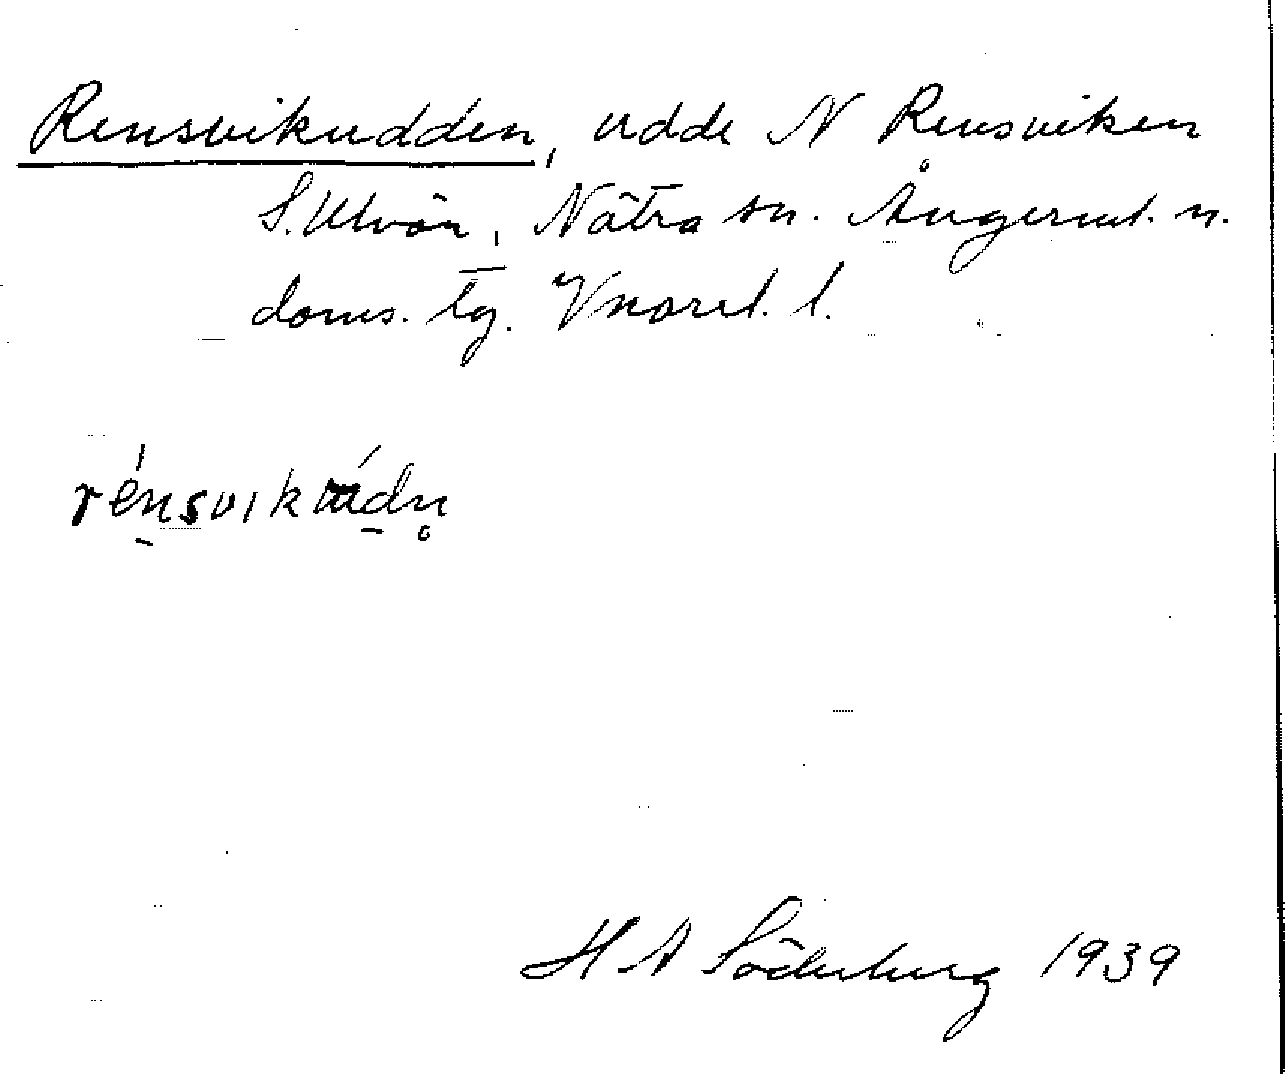 Rensvikudden, udde N Rensviken
S. Ulvön, Nätra sn. Ångerml. n.
doms. tg. Vnorrl. l.
rénsvikúdn̥
H A Söderberg 1939